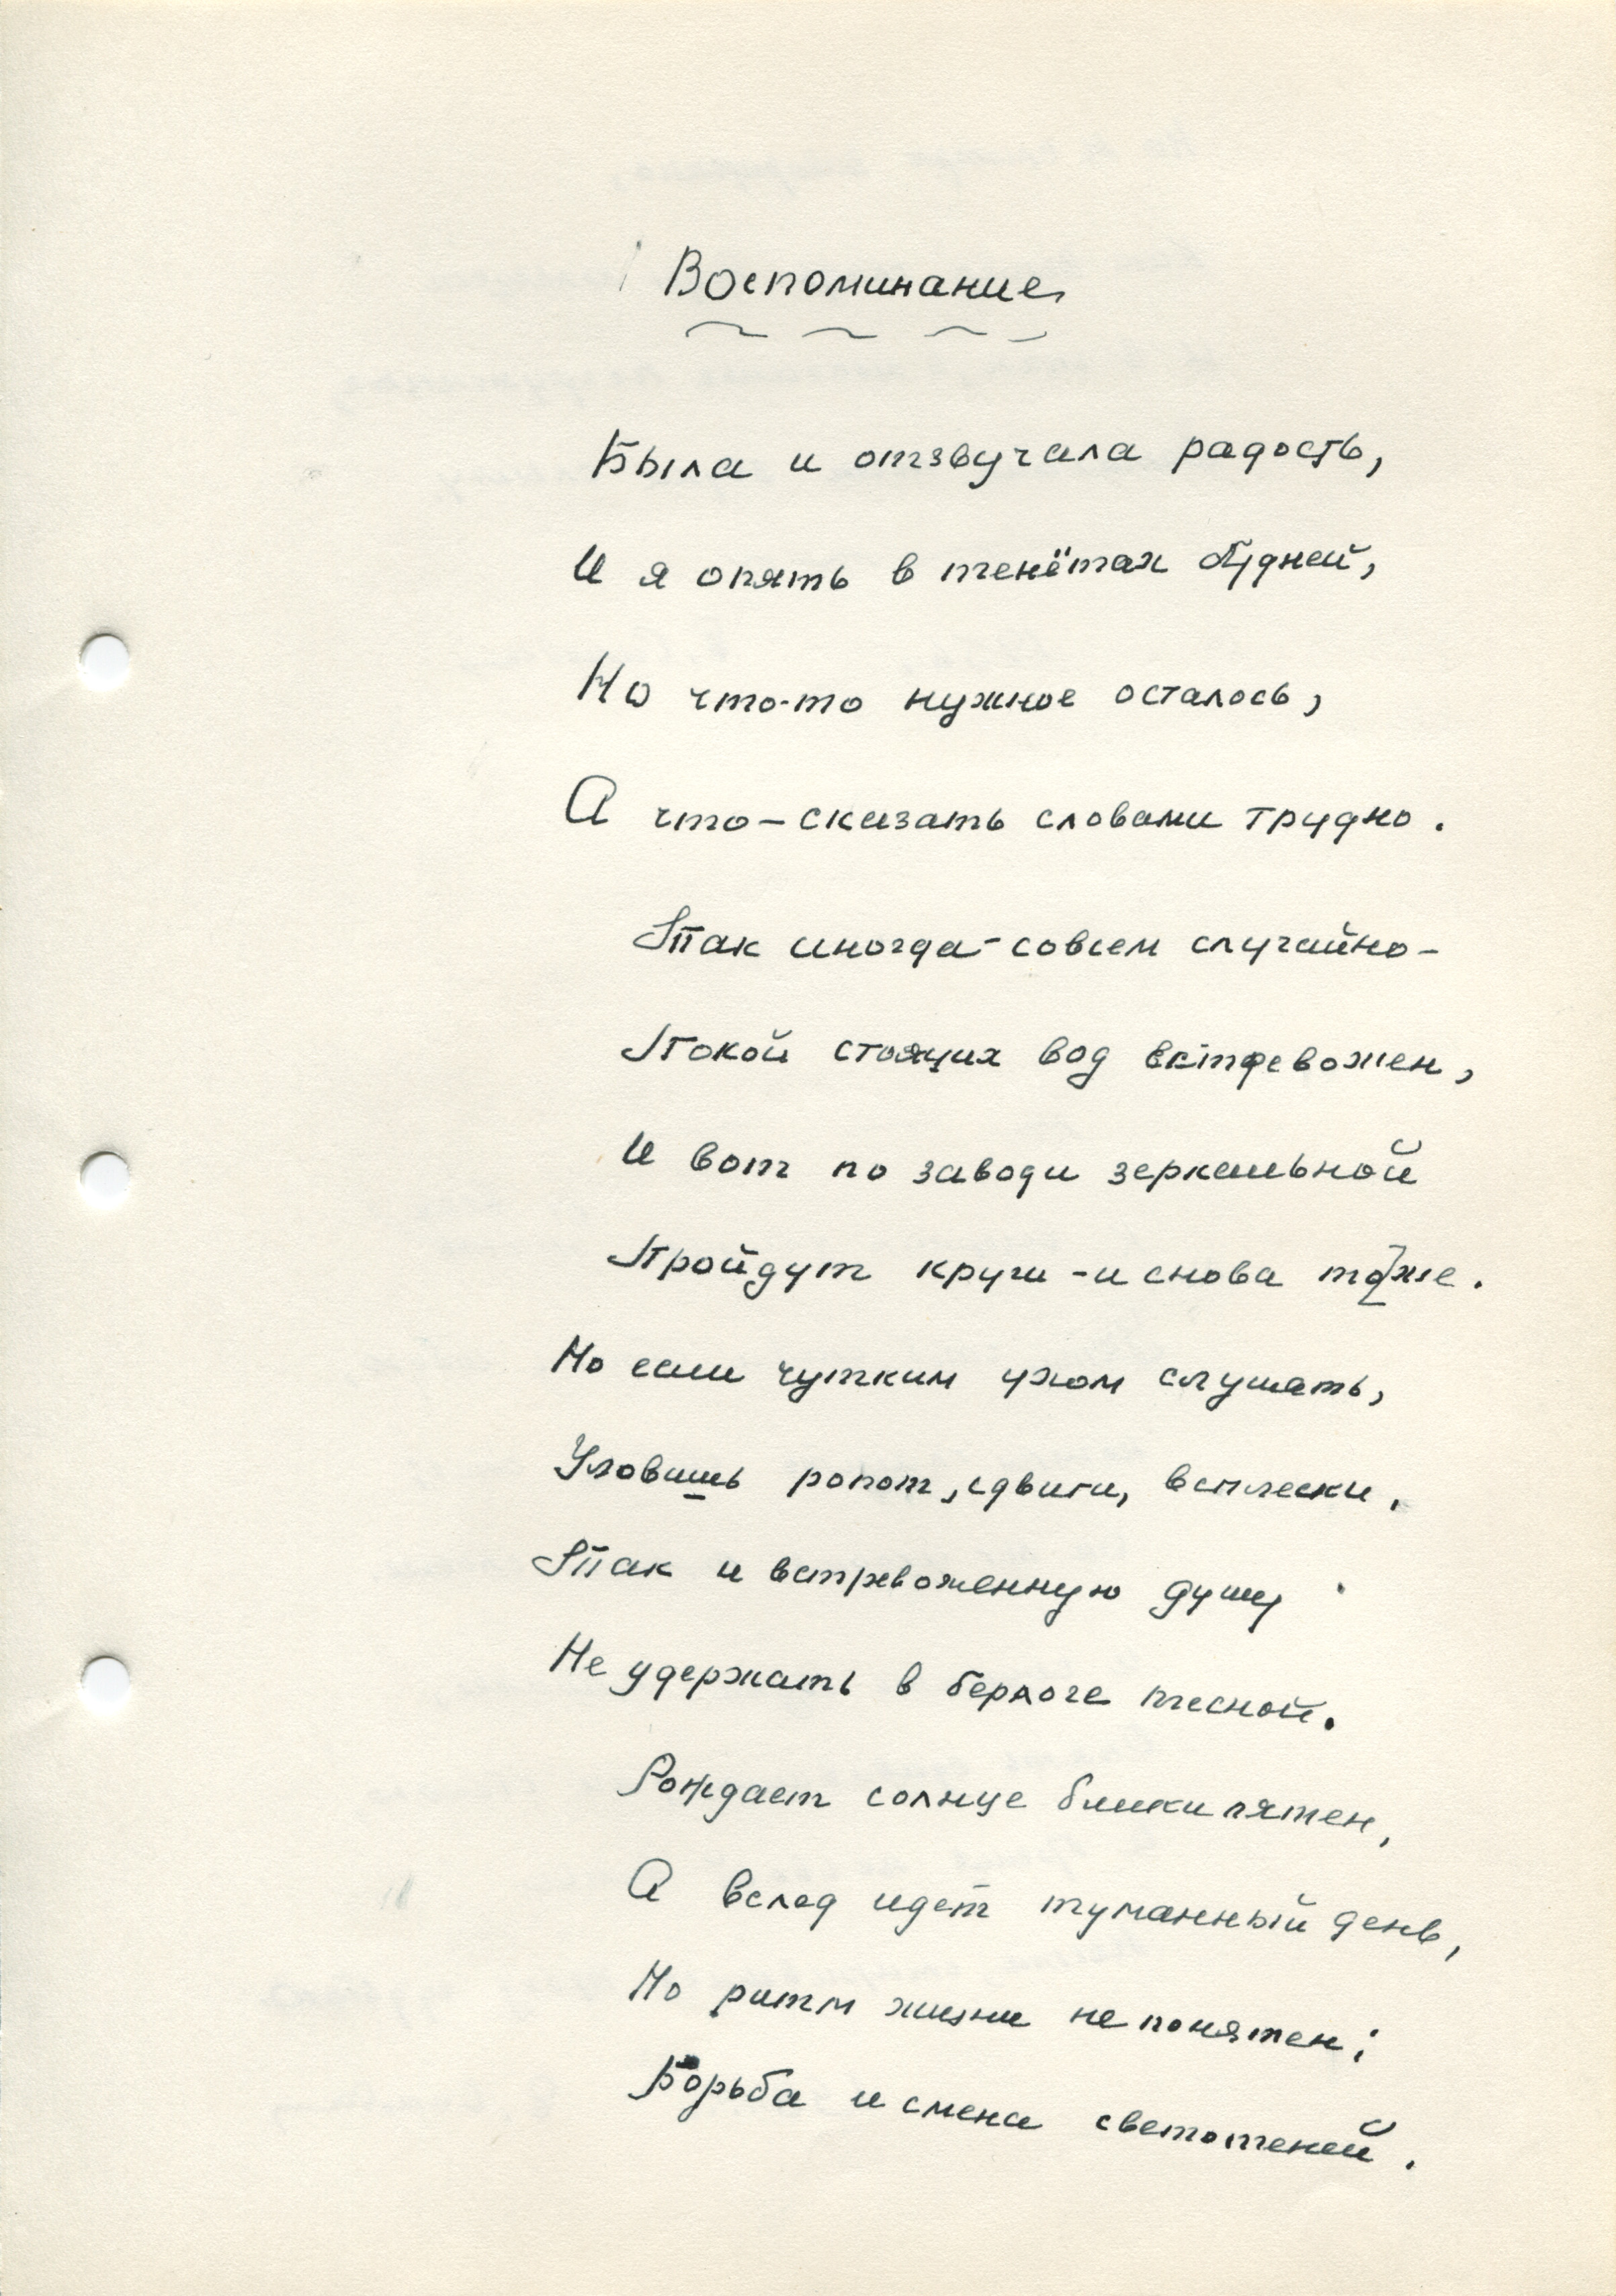 Воспоминание
Была и отзвучала радость,
И я опять в тенётах будней,
Но что-то нужное осталось,
А что – сказать словами трудно.
Так иногда – совсем случайно –
Покой стоящих вод встревожен,
И вот по заводи зеркальной
Пройдут круги – и снова то же.
Но если чутким ухом слушать,
Уловишь ропот, сдвиги, всплески.
Так и встревоженную душу
Не удержать в берлоге тесной.
Рождает солнце блики пятен,
А вслед идет туманный день,
Но ритм жизни не понятен:
Борьба и смена светотеней.